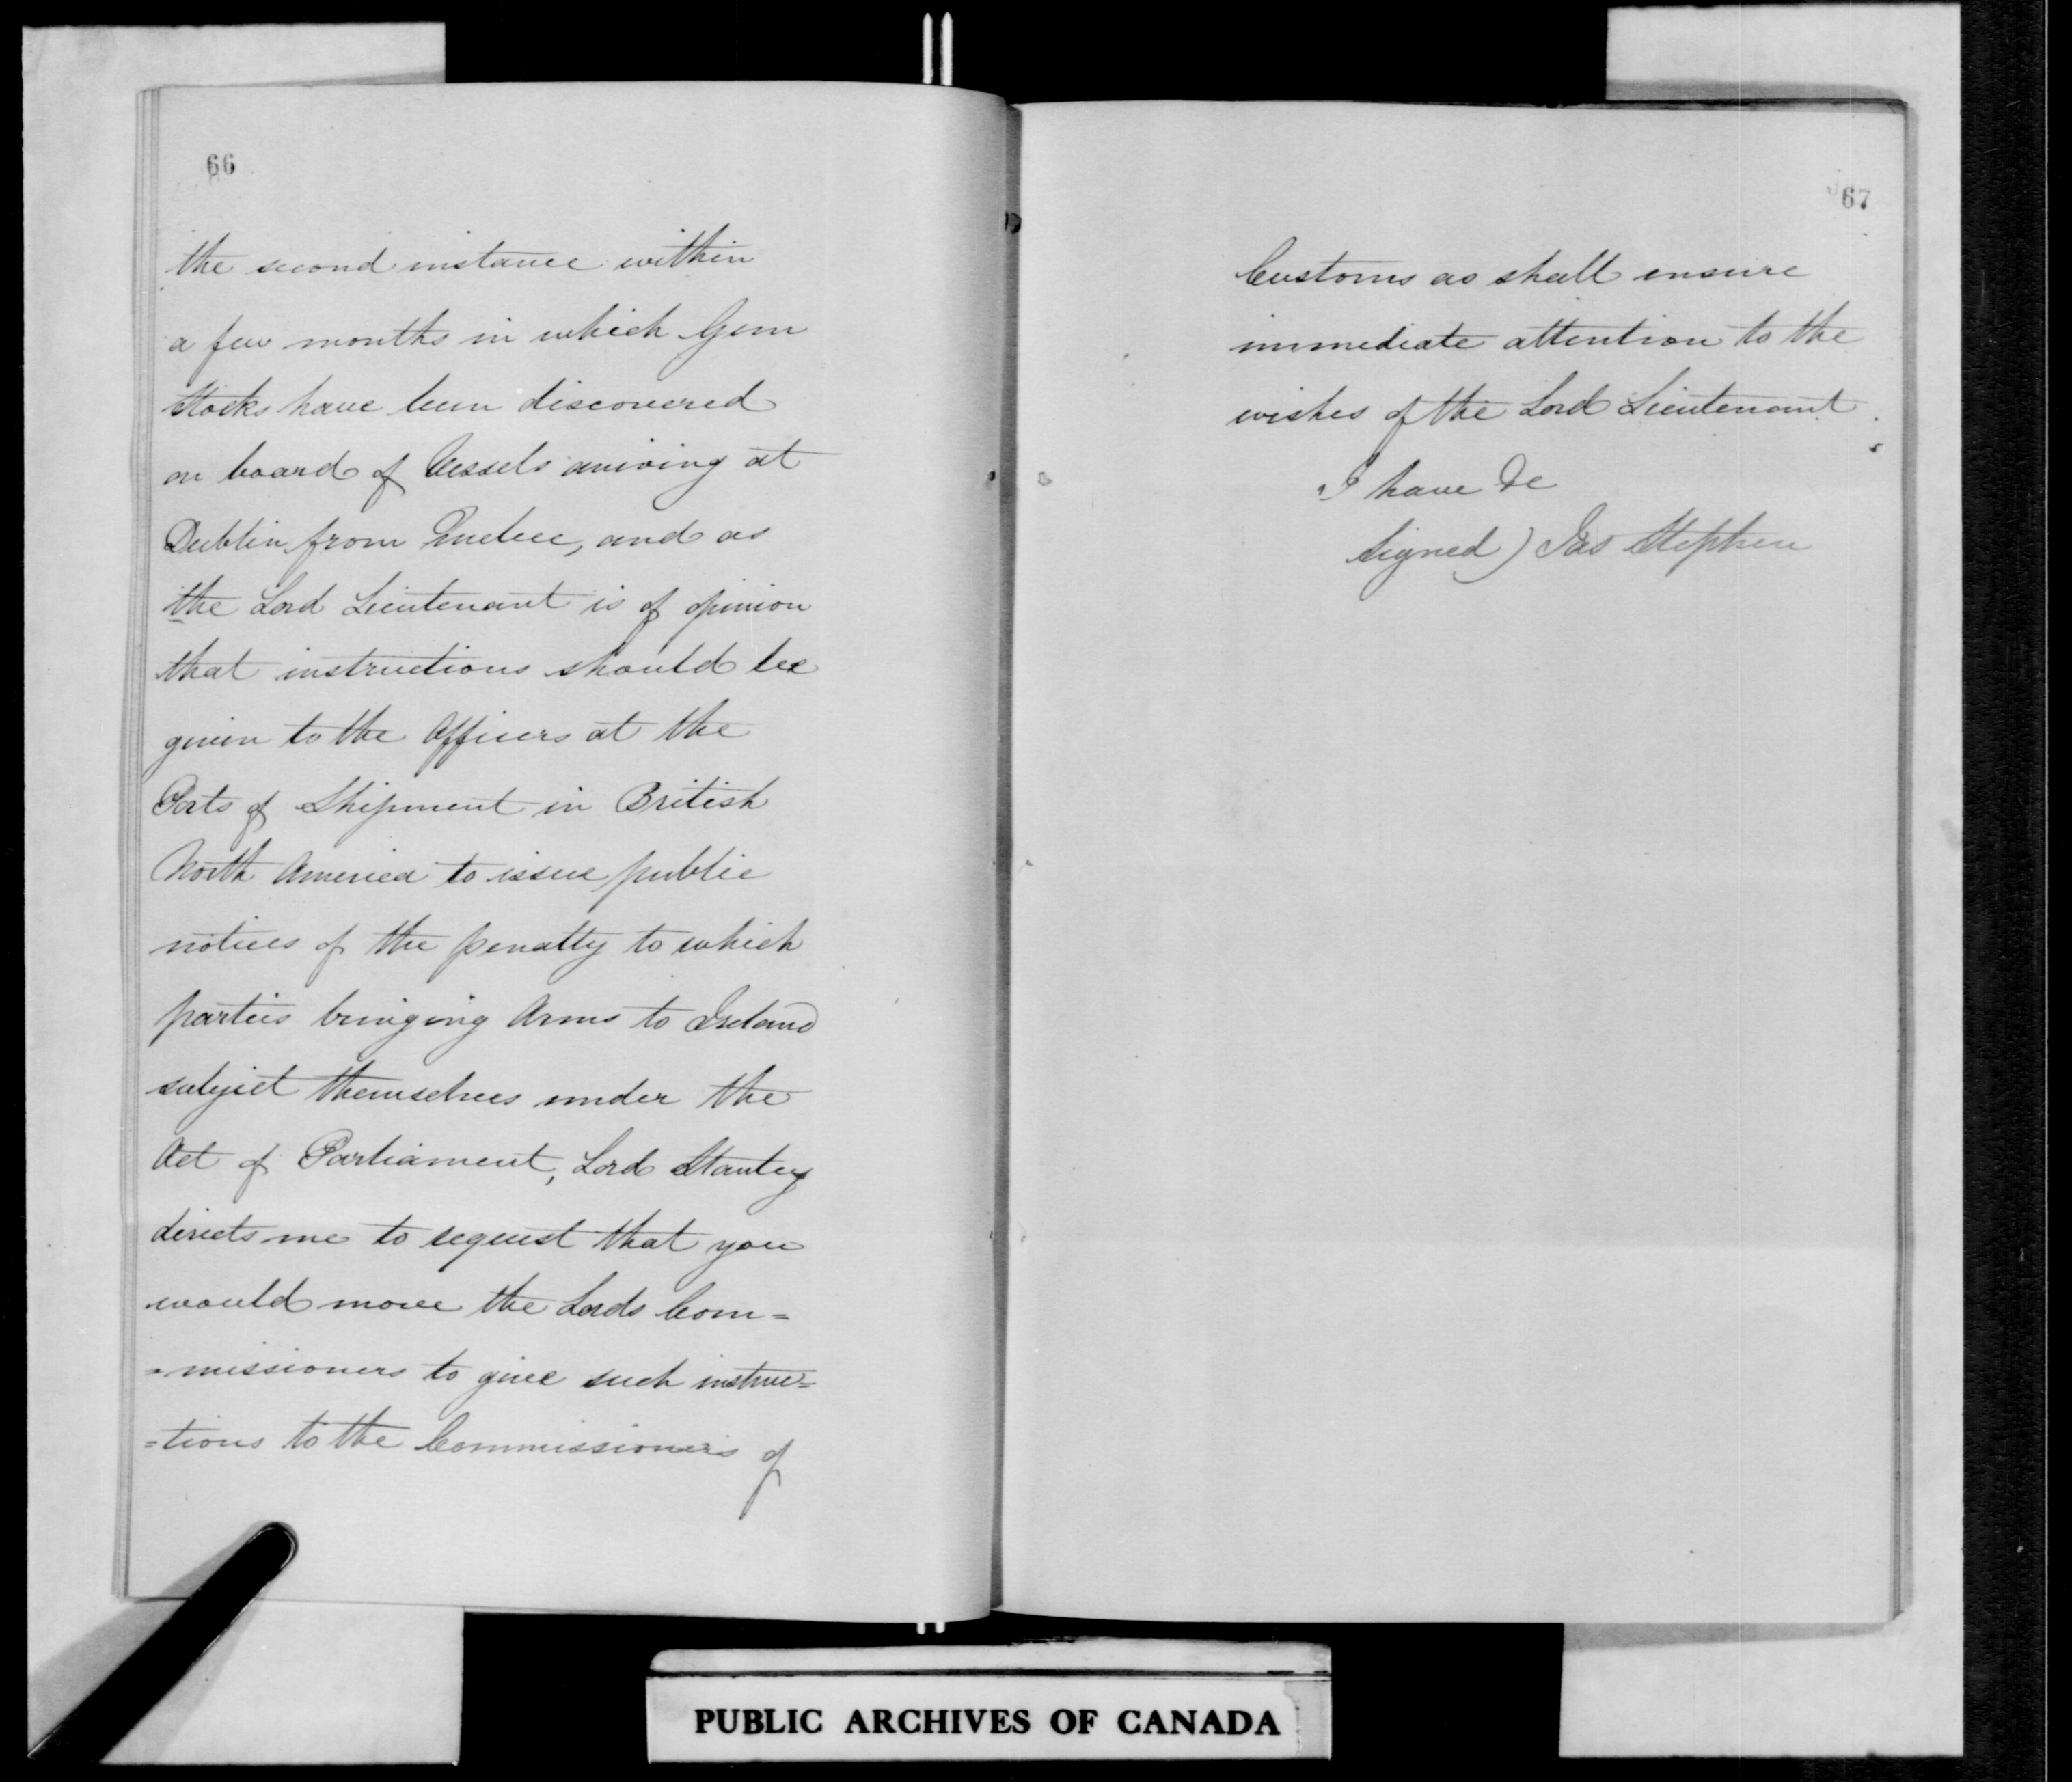 66
the second instance within
a few months in which Gun
Stocks have been discovered
on board of Vessels arriving at
Dublin from Quebec, and as
the Lord Lieutenant is of opinion
that instructions should be
given to the Officers at the
Ports of Shipment in British
North America to issue public
notices of the penalty to which
parties bringing Arms to Ireland
subject themselves under the
Act of Parliament, Lord Stanley
directs me to request that you
would move the Lords Com=
=missioners to give such instruc=
=tions to the Commissioners of
67
Customs as shall ensure
immediate attention to the
wishes of the Lord Lieutenant.
I have &c
Signed) Jas Stephen
PUBLIC ARCHIVES OF CANADA